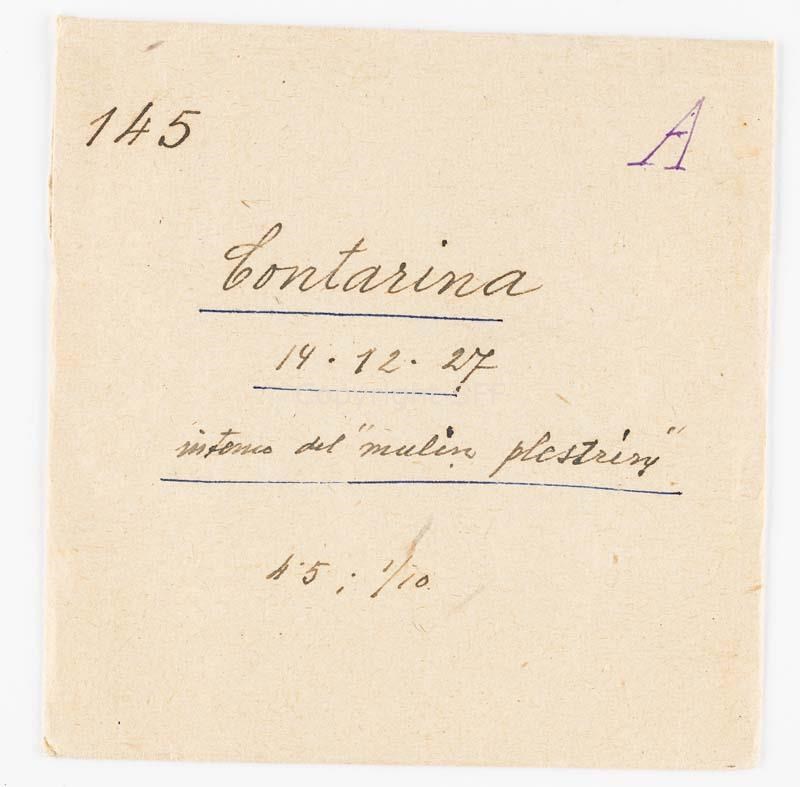 145 A
Contarina
14 · 12 · 27
interno del "mulin plestriny"
4'5 ; 1/10